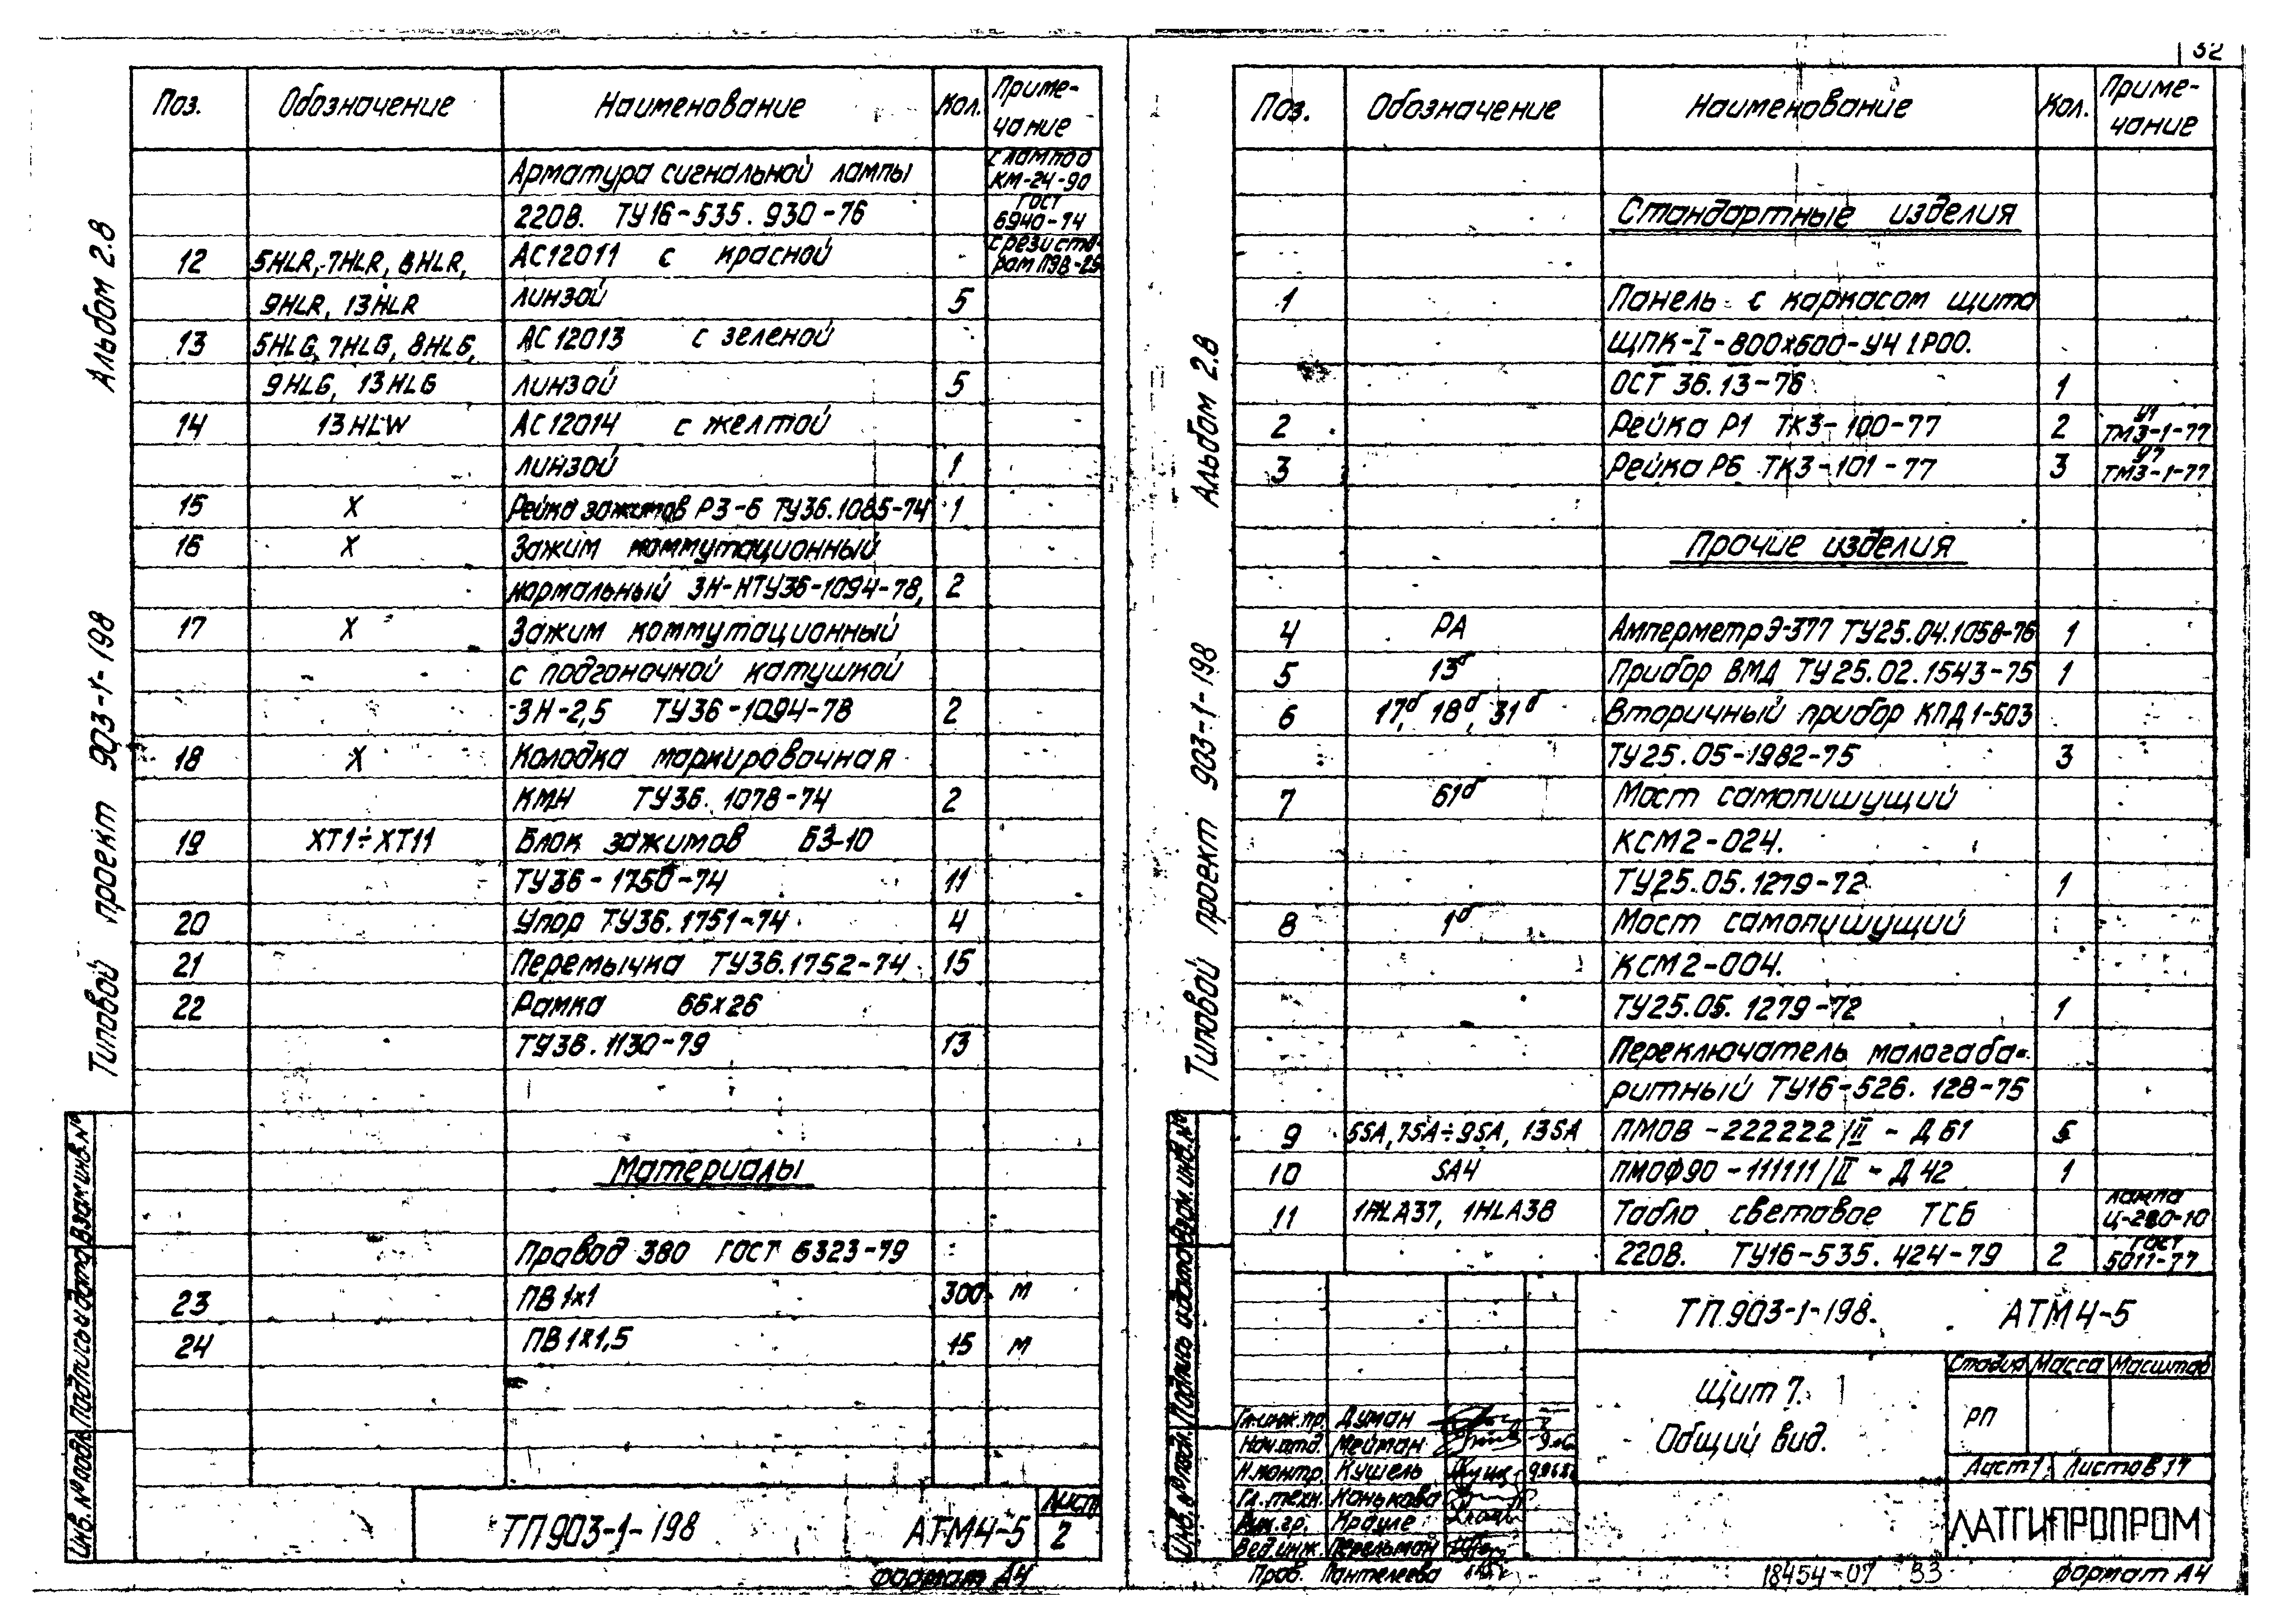 32
Альбом 2.8
Типовой проект 903-1-198
Поз. Обозначение Наименование Кол. Приме-
чание
Арматура сигнальной лампы с лампой
КМ-24-90
220В. ТУ16-535.930-76 ГОСТ
6940-74
12 5HLR, 7HLR, 8HLR, АС12011 с красной с резисто-
ром ПЭВ-25
9HLR, 13HLR линзой 5
13 5HLG, 7HLG, 8HLG, АС12013 с зеленой
9HLG, 13HLG линзой 5
14 13HLW АС12014 с желтой
линзой 1
15 X Рейка зажимов РЗ-6 ТУ36.1085-74 1
16 X Зажим коммутационный
нормальный ЗН-НТУ36-1094-78, 2
17 X Зажим коммутационный
с подгоночной катушкой
ЗН-2,5 ТУ36-1094-78 2
18 X Колодка маркировочная
КМН ТУ36.1078-74 2
19 XT1÷XT11 Блок зажимов БЗ-10
ТУ36-1750-74 11
20 Упор ТУ36.1751-74 4
21 Перемычка ТУ36.1752-74 15
22 Рамка 66х26
ТУ36.1130-79 13
Материалы
Провод 380 ГОСТ 6323-79
23 ПВ 1х1 300 м
24 ПВ 1х1,5 15 м
Инв. № подл. Подпись и дата Взам.инв.№
ТП 903-1-198 АТМ4-5 Лист
2
Формат А4
Альбом 2.8
Типовой проект 903-1-198
Поз. Обозначение Наименование Кол. Приме-
чание
Стандартные изделия
1 Панель с каркасом щита
ЩПК-I-800х600-У4 IP00.
ОСТ 36.13-76 1
2 Рейка Р1 ТК3-100-77 2 У1
ТМ3-1-77
3 Рейка Р6 ТК3-101-77 3 У7
ТМ3-1-77
Прочие изделия
4 PA Амперметр Э-377 ТУ25.04.1058-76 1
5 13б Прибор ВМД ТУ25.02.1543-75 1
6 17б, 18б, 31б Вторичный прибор КПД1-503
ТУ25.05-1982-75 3
7 61б Мост самопишущий
КСМ2-024.
ТУ25.05.1279-72 1
8 1б Мост самопишущий
КСМ2-004.
ТУ25.05.1279-72 1
Переключатель малогаба-
ритный ТУ16-526.128-75
9 5SA, 7SA÷9SA, 13SA ПМОВ-222222/II-Д61 5
10 SA4 ПМОФ90-111111/II-Д42 1
11 1HLA37, 1HLA38 Табло световое ТСБ лампа
Ц-220-10
220В. ТУ16-535.424-79 2 ГОСТ
5011-77
Инв. № подл. Подпись и дата Взам.инв.№
ТП 903-1-198. АТМ4-5
Щит 7.
Общий вид.
Стадия Масса Масштаб
РП
Лист 1 Листов 17
ЛАТГИПРОПРОМ
Гл.инж.пр. Думан
Нач.отд. Мейман
Н.контр. Кушель
Гл.техн. Конькова
Рук.гр. Крауле
Вед.инж. Перельман
Пров. Пантелеева
18454-07 33
Формат А4